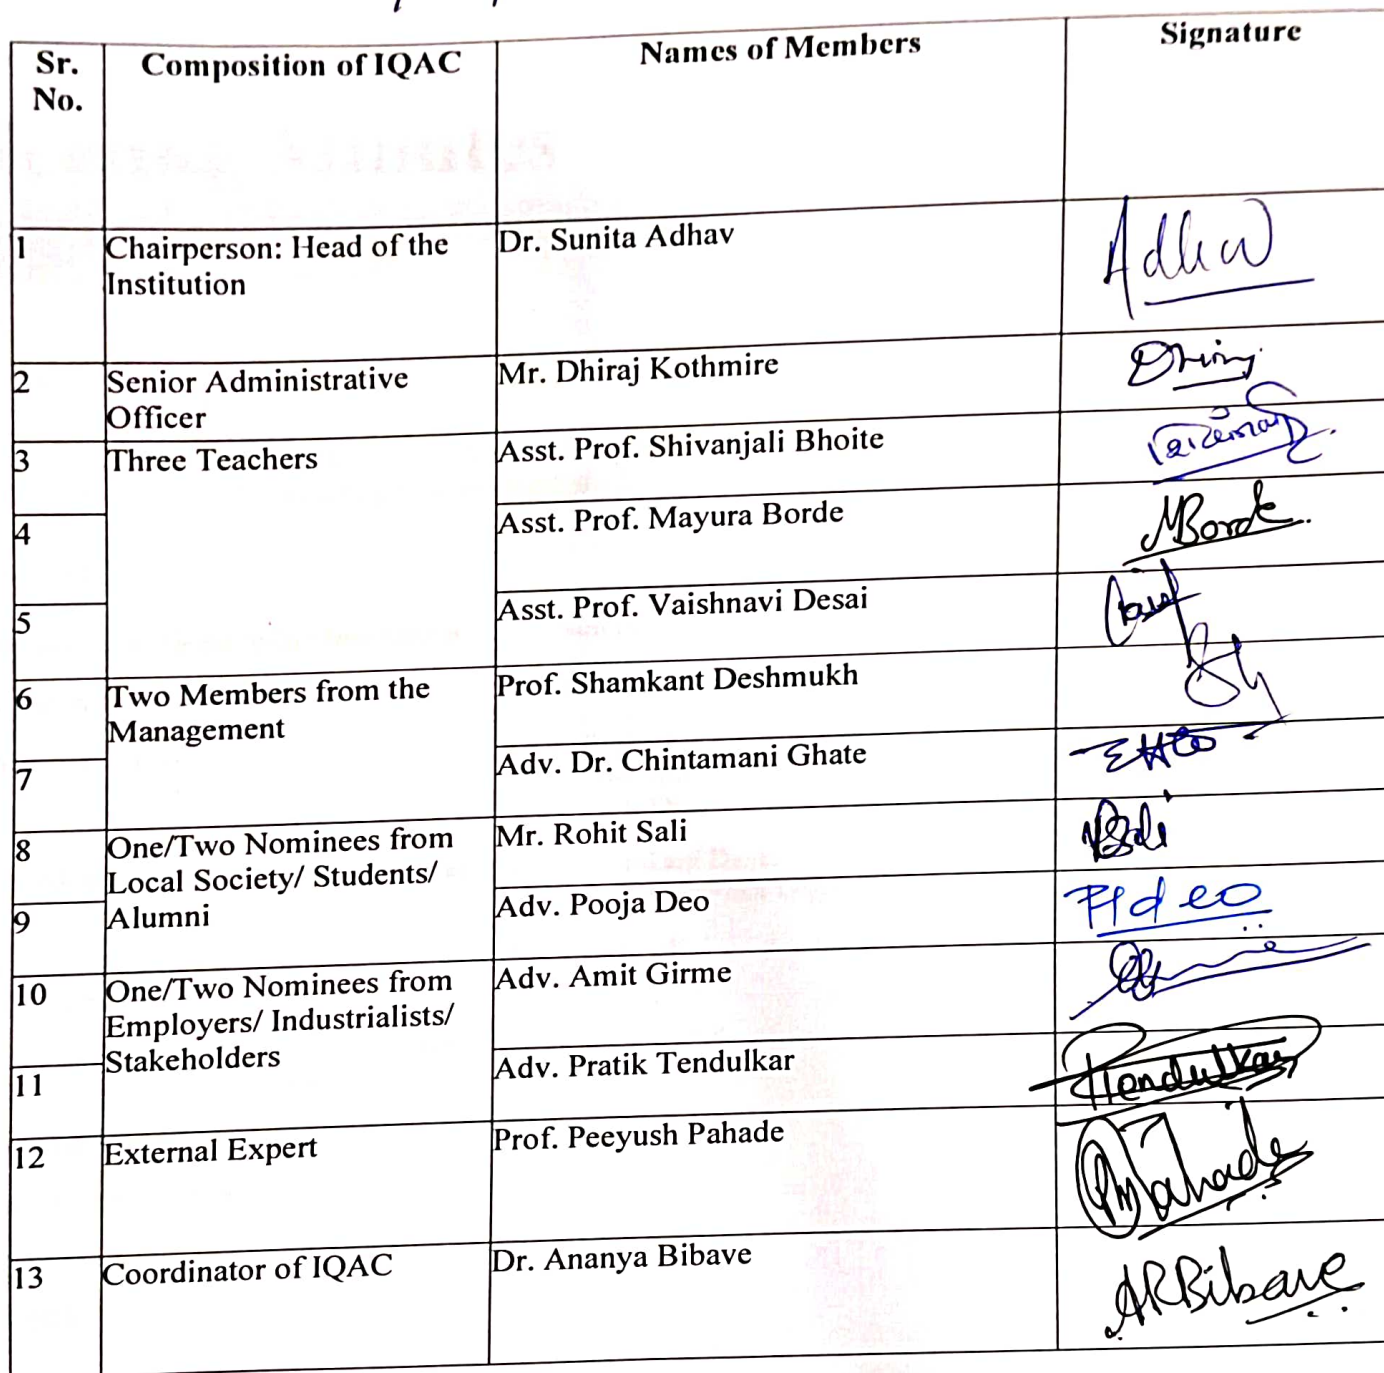 Sr. No.
Composition of IQAC
Names of Members
Signature
1
Chairperson: Head of the
Institution
Dr. Sunita Adhav
2
Senior Administrative
Officer
Mr. Dhiraj Kothmire
3
Three Teachers
Asst. Prof. Shivanjali Bhoite
4
Asst. Prof. Mayura Borde
MBorde
5
Asst. Prof. Vaishnavi Desai
6
Two Members from the
Management
Prof. Shamkant Deshmukh
7
Adv. Dr. Chintamani Ghate
8
One/Two Nominees from
Local Society/ Students/
Alumni
Mr. Rohit Sali
9
Adv. Pooja Deo
10
One/Two Nominees from
Employers/ Industrialists/
Stakeholders
Adv. Amit Girme
11
Adv. Pratik Tendulkar
PTendulkar
12
External Expert
Prof. Peeyush Pahade
13
Coordinator of IQAC
Dr. Ananya Bibave
ARBibave